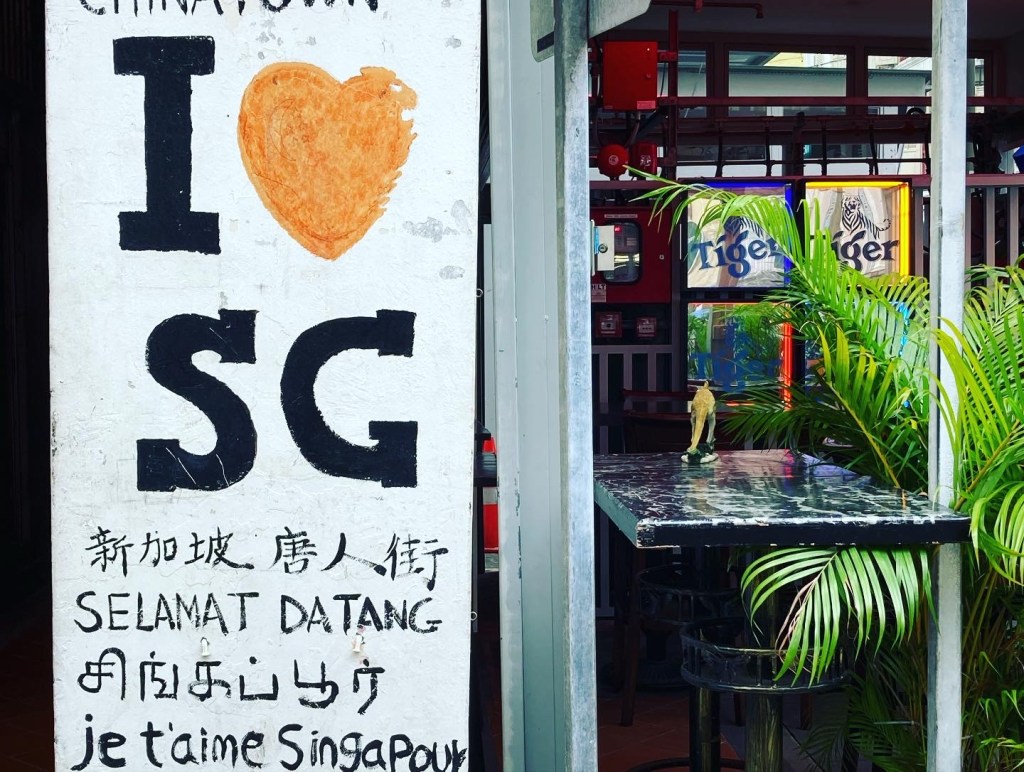 CHINATOWN
I
SG
新加坡 唐人街
SELAMAT DATANG
சிங்கப்பூர்
je t'aime Singapour
Tiger
Tiger